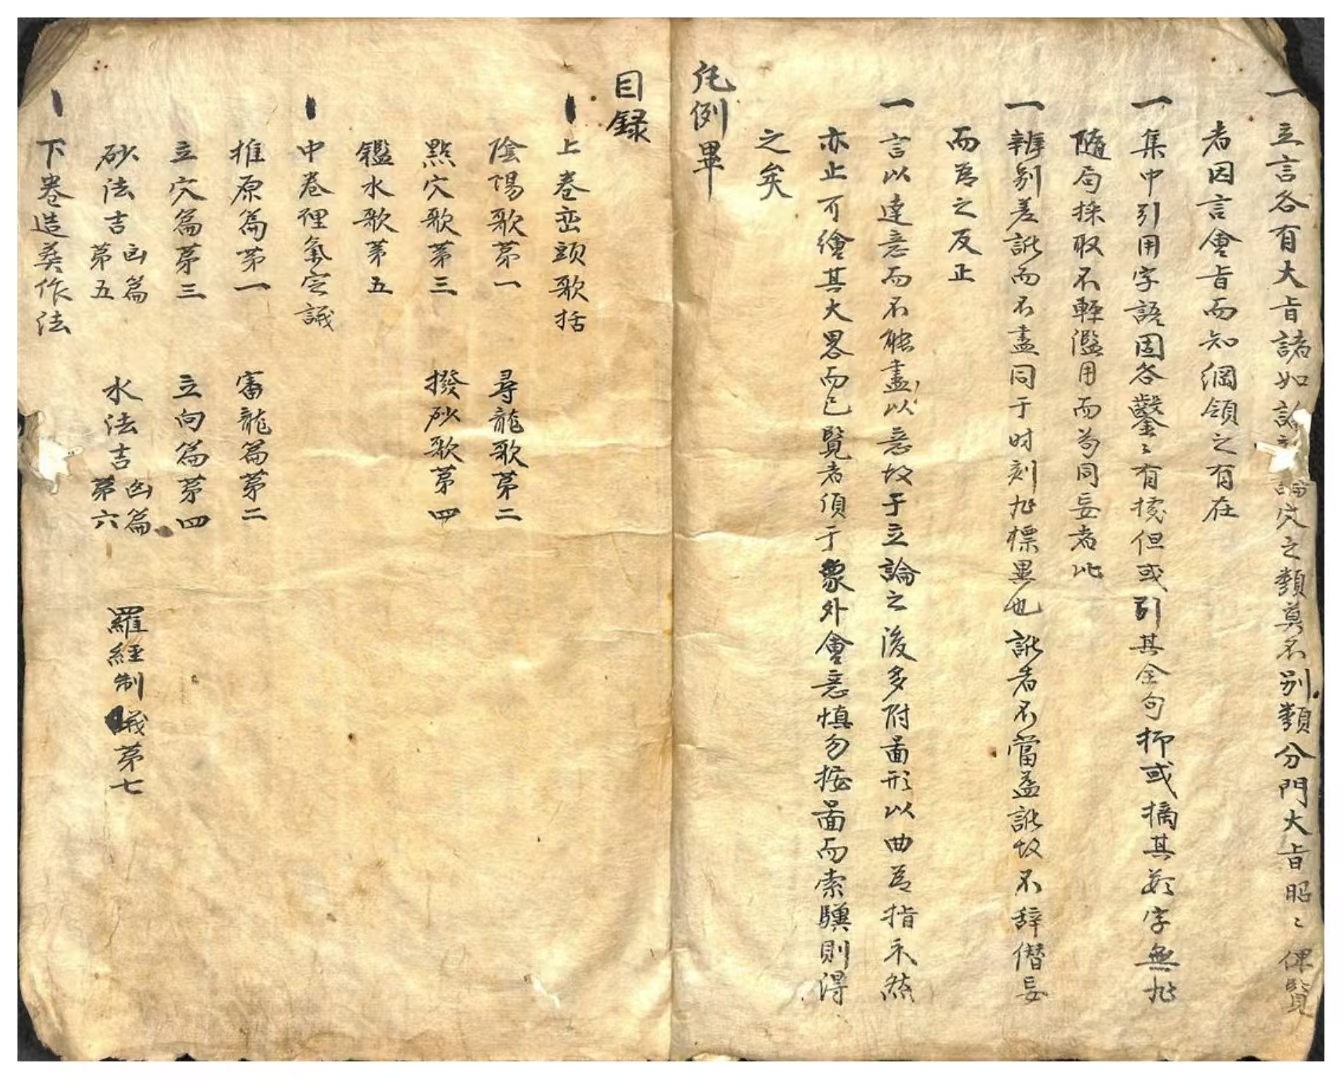 一立言各有大旨諸如論
論穴之類莫不别類分門大旨昭〻俾覽
者因言會旨而知綱領之有在
一集中引用字語固各鑿〻有據但或引其全句抑或摘其幾字無非
隨局採取不輕濫用而苟同妄者比
一辨别差訛而不盡同于时刻非標異也訛者不當益訛故不辞僭妄
而爲之反止
一言以達意而不能盡以意故于立論之後多附畵形以曲爲指示然
亦止可繪其大畧而已覽者須于象外會意慎勿按畵而索驥則得
之矣
凡例畢
目録
上卷巒頭歌括
陰陽歌第一 尋龍歌第二
㸃穴歌第三 撥砂歌第四
鑑水歌第五
中卷理氣定議
推原篇第一 審龍篇第二
立穴篇第三 立向篇第四
砂法吉凶篇第五 水法吉凶篇第六 羅經制議第七
下卷造葬作法